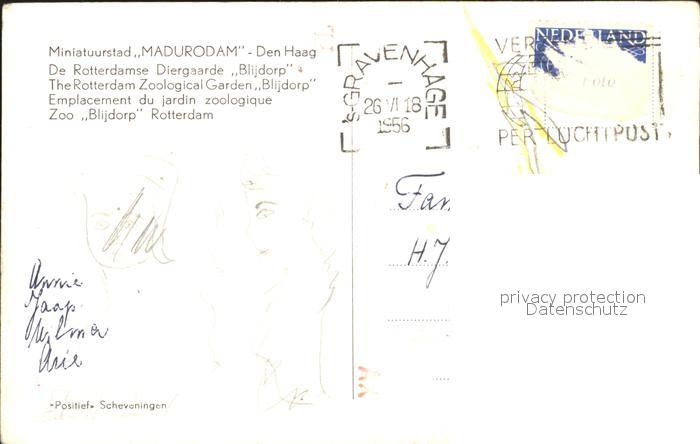 Miniatuurstad „MADURODAM" - Den Haag
De Rotterdamse Diergaarde „Blijdorp"
The Rotterdam Zoological Garden „Blijdorp"
Emplacement du jardin zoologique
Zoo „Blijdorp" Rotterdam
's-GRAVENHAGE
26 VI 18
1956
NEDERLAND
VER
PER LUCHTPOST
Fam
H.J.
Annie
Jaap
Wilma
Arie
privacy protection
Datenschutz
"Positief" Scheveningen